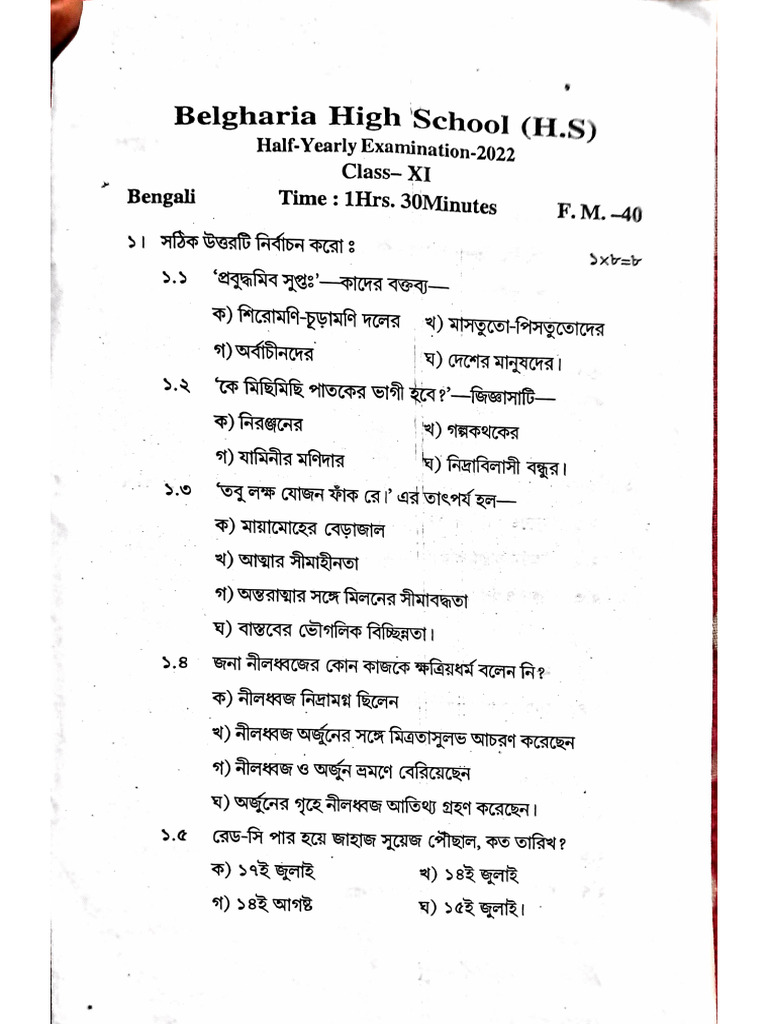 Belgharia High School (H.S)
Half-Yearly Examination-2022
Class– XI
Bengali Time : 1Hrs. 30Minutes F. M. –40
১। সঠিক উত্তরটি নির্বাচন করো ঃ ১×৮=৮
১.১ ‘প্রবুদ্ধমিব সুপ্তঃ’—কাদের বক্তব্য—
ক) শিরোমণি-চূড়ামণি দলের খ) মাসতুতো-পিসতুতোদের
গ) অর্বাচীনদের ঘ) দেশের মানুষদের।
১.২ ‘কে মিছিমিছি পাতকের ভাগী হবে?’—জিজ্ঞাসাটি—
ক) নিরঞ্জনের খ) গল্পকথকের
গ) যামিনীর মণিদার ঘ) নিদ্রাবিলাসী বন্ধুর।
১.৩ ‘তবু লক্ষ যোজন ফাঁক রে।’ এর তাৎপর্য হল—
ক) মায়ামোহের বেড়াজাল
খ) আত্মার সীমাহীনতা
গ) অন্তরাত্মার সঙ্গে মিলনের সীমাবদ্ধতা
ঘ) বাস্তবের ভৌগলিক বিচ্ছিন্নতা।
১.৪ জনা নীলধ্বজের কোন কাজকে ক্ষত্রিয়ধর্ম বলেন নি?
ক) নীলধ্বজ নিদ্রামগ্ন ছিলেন
খ) নীলধ্বজ অর্জুনের সঙ্গে মিত্রতাসুলভ আচরণ করেছেন
গ) নীলধ্বজ ও অর্জুন ভ্রমণে বেরিয়েছেন
ঘ) অর্জুনের গৃহে নীলধ্বজ আতিথ্য গ্রহণ করেছেন।
১.৫ রেড-সি পার হয়ে জাহাজ সুয়েজ পৌছাল, কত তারিখ?
ক) ১৭ই জুলাই খ) ১৪ই জুলাই
গ) ১৪ই আগষ্ট ঘ) ১৫ই জুলাই।